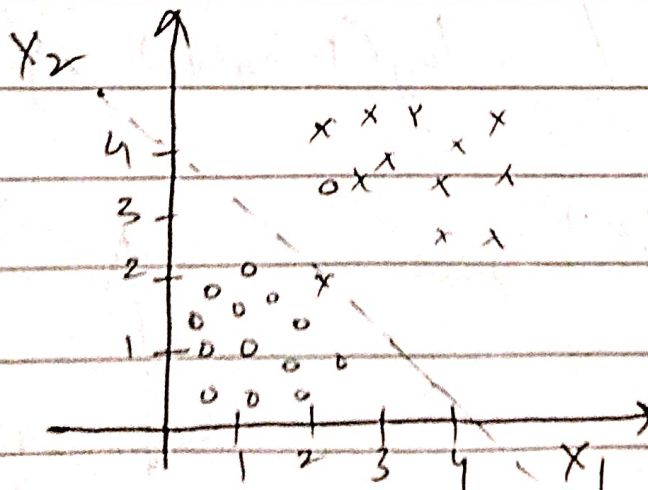 X2
4
3
2
1
1 2 3 4 X1